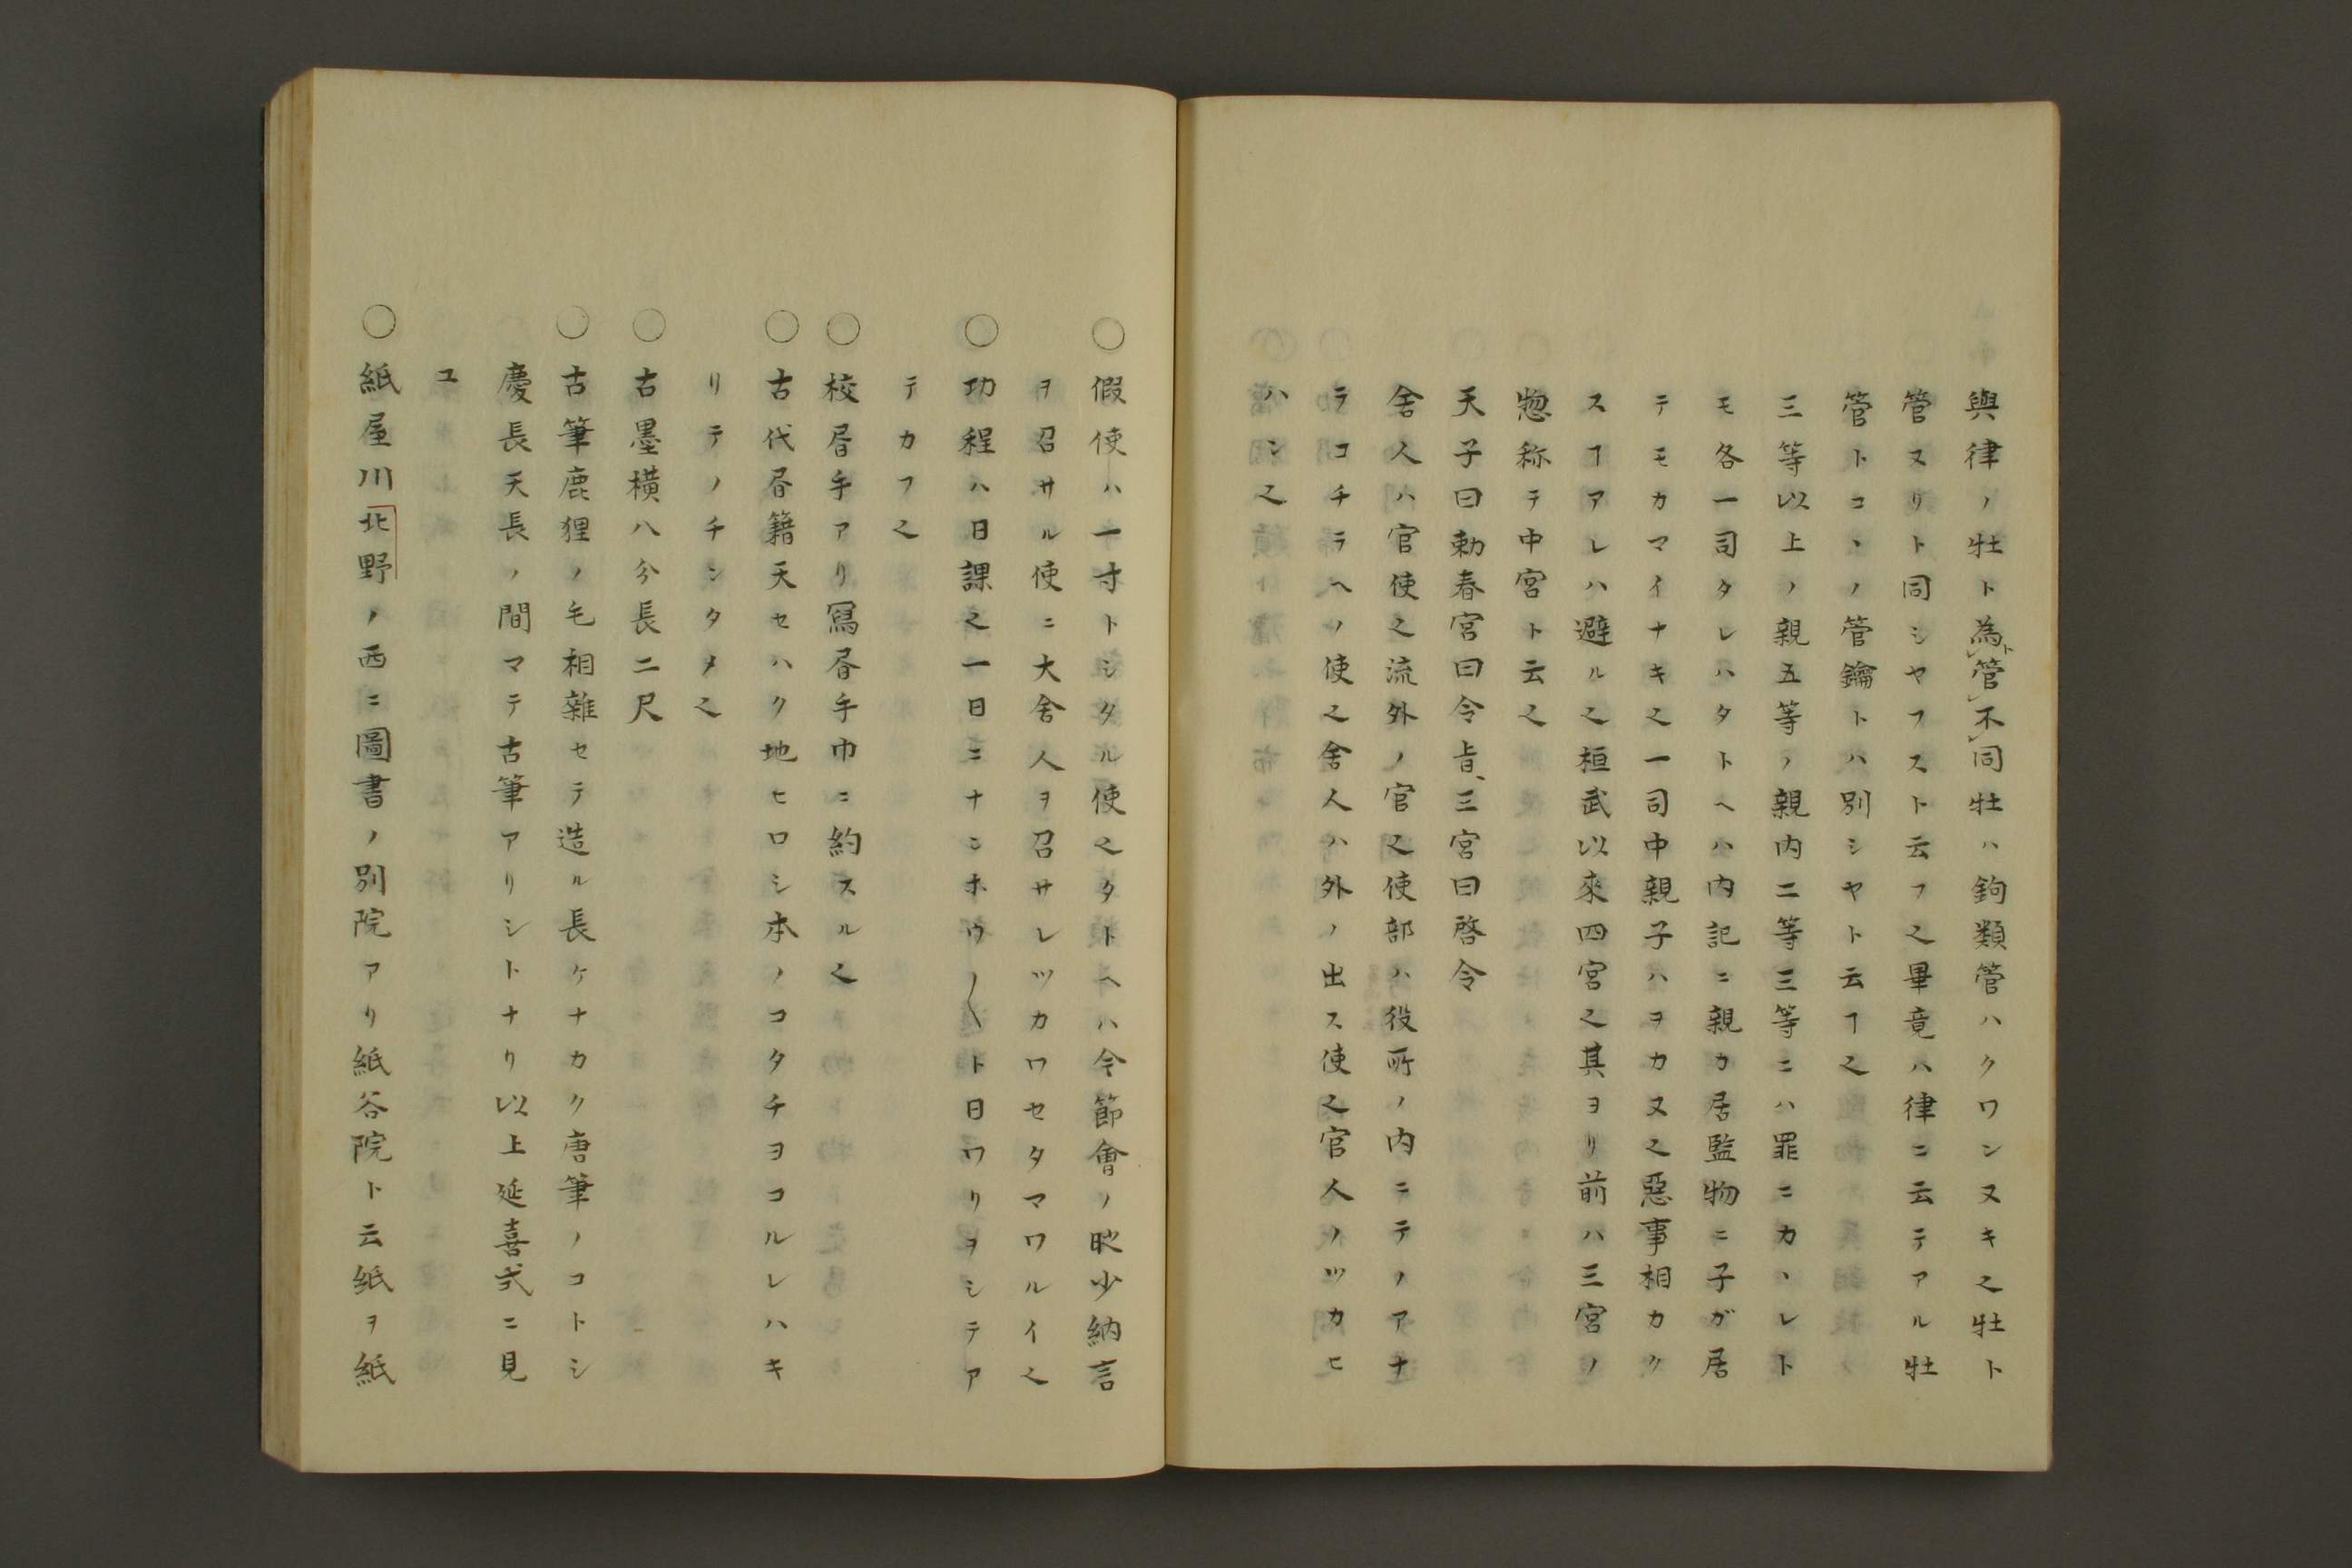 與律ノ牡ト為ト管不同牡ハ鉤類管ハクワンヌキ之牡ト
管ヌリト同シヤフスト云フ之畢竟ハ律ニ云テアル牡
管トコヽノ管鑰トハ別シヤト云ヿ之
三等以上ノ親五等ノ親内二等三等ニハ罪ニカヽレト
モ各一司タレハタトヘハ内記ニ親カ居監物ニ子ガ居
テモカマイナキ之一司中親子ハヲカヌ之惡事相カク
スヿアレハ避ル之桓武以來四宮之其ヨリ前ハ三宮ノ
惣称テ中宮ト云之
天子曰勅春宮曰令旨、三宮曰啓令
舍人ハ官使之流外ノ官之使部ハ役所ノ内ニテノアナ
ラコチラヘノ使之舍人ハ外ノ出ス使之官人ノツカヒ
ハン之
○假使ハ一寸トシタル使之タトヘハ今節會ノ時少納言
ヲ召サル使ニ大舍人ヲ召サレツカワセタマワルイ之
○功程ハ日課之一日ニナニホウ〳〵ト日ワリヲシテア
テカフ之
○校昏手アリ冩昏手巾ニ約スル之
○古代昏籍天セハク地ヒロシ本ノコタチヨコルレハキ
リテノチンタメ之
○古墨横八分長二尺
○古筆鹿狸ノ毛相雜セテ造ル長ケナカク唐筆ノコトシ
慶長天長ノ間マテ古筆アリシトナリ以上延喜式ニ見
ユ
○紙屋川北野ノ西ニ圖書ノ別院アリ紙谷院ト云紙ヲ紙